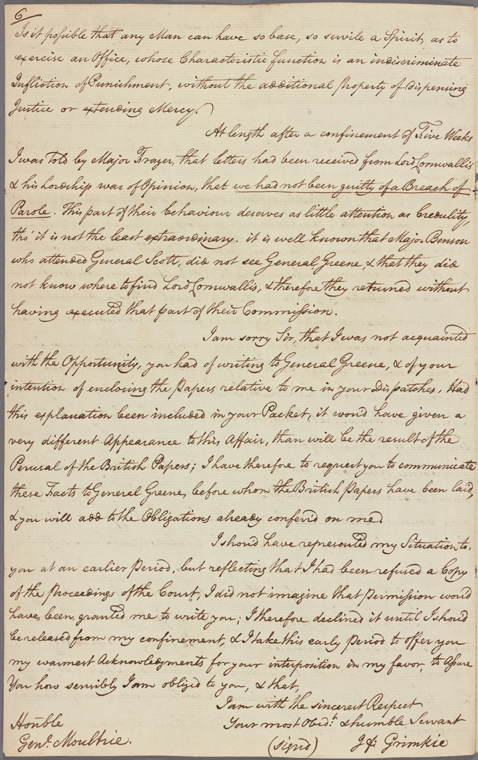 6
Is it possible that any Man can have so base, so servile a Spirit, as to
exercise an Office, whose Characteristic function is an indiscriminate
Infliction of Punishment, without the additional Property of dispensing
Justice or extending Mercy.
At length after a confinement of Five Weeks
I was told by Major Frazer, that letters had been received from Lord Cornwallis
& his Lordship was of Opinion, that we had not been guilty of a Breach of
Parole. This part of their behaviour deserves as little attention as Credulity,
tho' it is not the least extraordinary. it is well known that Major Benson
who attended General Scott, did not see General Greene, & that they did
not know where to find Lord Cornwallis, & therefore they returned without
having executed that part of their Commission.
I am sorry Sir, that I was not acquainted
with the Opportunity, you had of writing to General Greene, & of your
intention of enclosing the Papers relative to me in your Dispatches. Had
this explanation been included in your Packet, it would have given a
very different Appearance to this Affair, than will be the result of the
Perusal of the British Papers; I have therefore to request you to communicate
these Facts to General Greene, before whom the British Papers have been laid,
& you will add to the Obligations already conferd on me
I should have represented my Situation to
you at an earlier Period, but reflecting that I had been refused a Copy
of the Proceedings of the Court, I did not imagine that Permission would
have been granted me to write you; I therefore declined it until I should
be released from my confinement, & I take this early Period to offer you
my warmest Acknowledgments for your interposition in my favor, to Assure
You how sensibly I am obliged to you, & that,
I am with the sincerest Respect
Honble Your most Obedt. & humble Servant
Genl. Moultrie. (signd) J. F. Grimkie